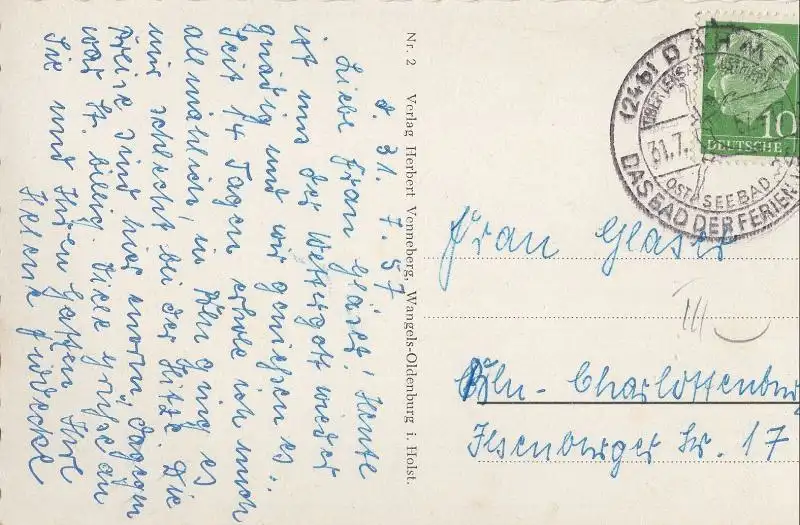 d. 31. 7. 57
Liebe Frau Gläser! Heute
ist uns der Wettergott wieder
gnädig und wir genießen es.
Seit 14 Tagen erhole ich mich
allmählich, in Bln ging es
mir schlecht bei der Hitze. Die
Preise sind hier enorm, dagegen
war St. billig. Viele Grüße an
Sie und Ihren Gatten Ihre
Helene
Nr. 2 Verlag Herbert Venneberg, Wangels-Oldenburg i. Holst.
(24b) DAHME
31.7.
OSTSEEBAD
DAS BAD DER FERIEN
10
DEUTSCHE
Frau Gläser
III
Bln-Charlottenburg
Ilsenburger Str. 17